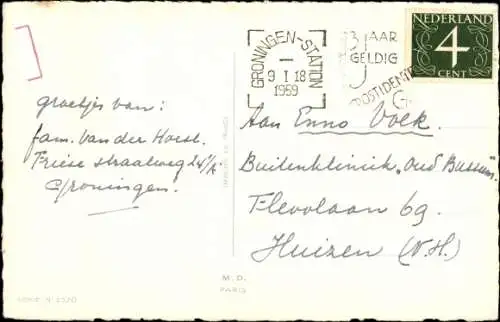 groetjes van:
fam. van der Horst.
Friese straatweg 24
Groningen.
GRONINGEN-STATION
9 I 18
1959
3 JAAR
GELDIG
NEDERLAND
4
CENT
Aan Enno Volk.
Buitenkliniek „Oud Bussum".
Flevolaan 69.
Huizen (N.H.)
M.D.
PARIS